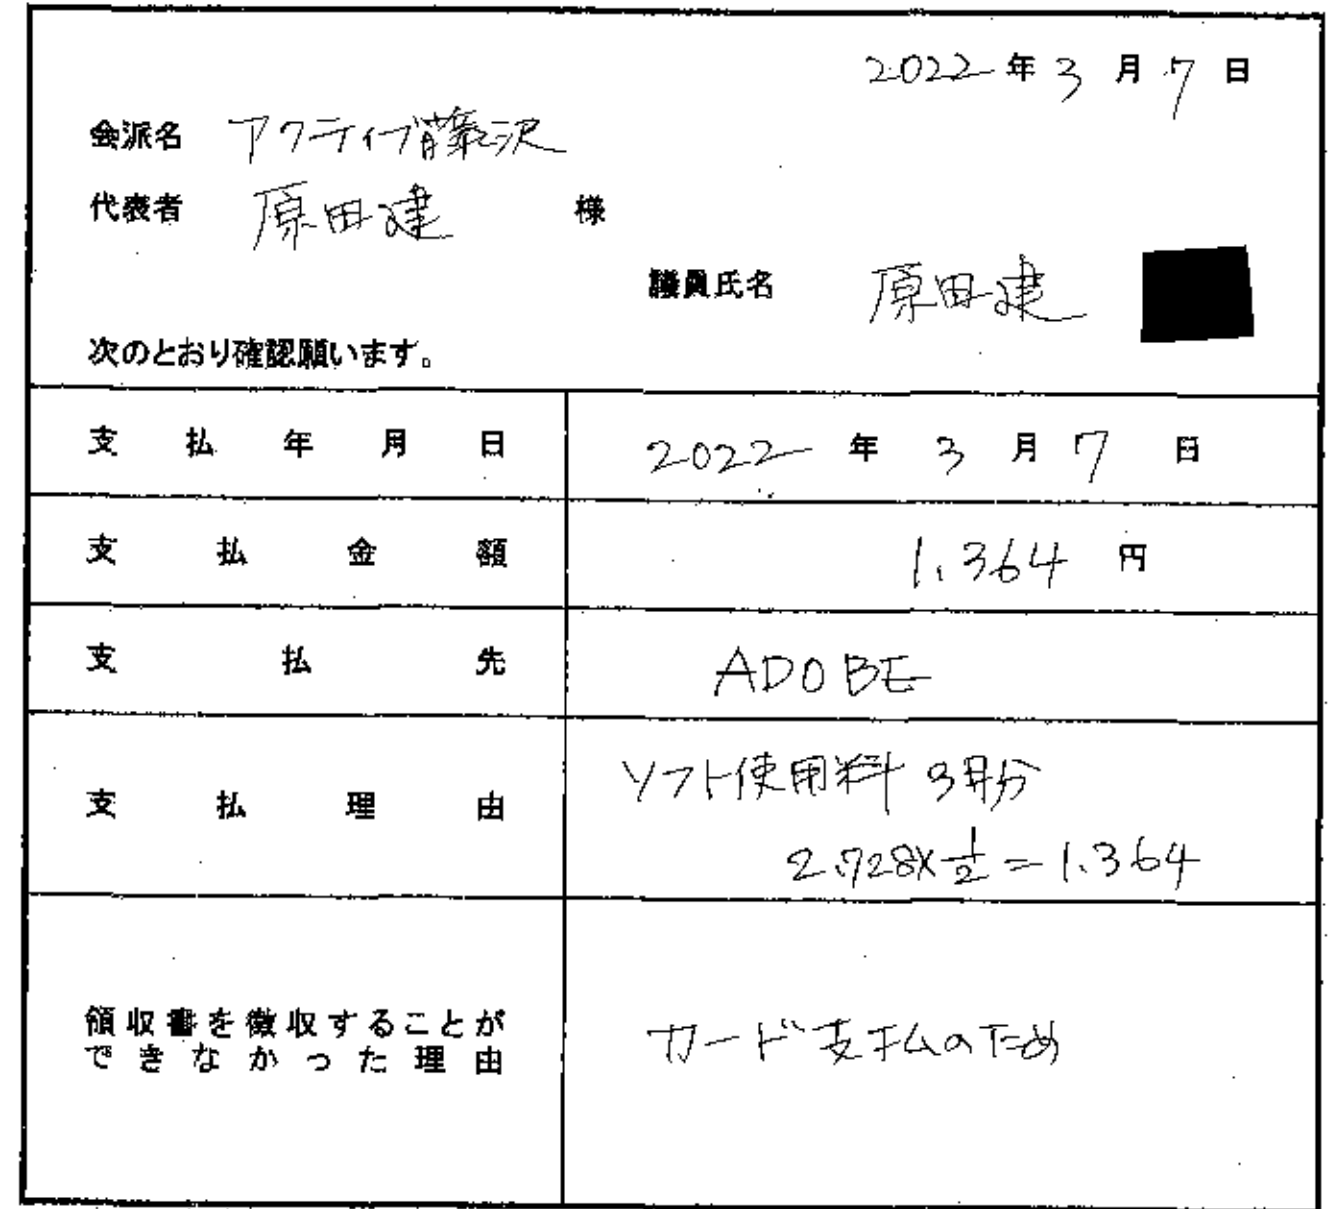 2022年3月7日
会派名 アクティブ藤沢
代表者 原田建 様
議員氏名 原田建
次のとおり確認願います。
支払年月日 2022年3月7日
支払金額 1,364円
支払先 ADOBE
支払理由 ソフト使用料 3月分
2,728×1/2=1,364
領収書を徴収することが
できなかった理由
カード支払のため